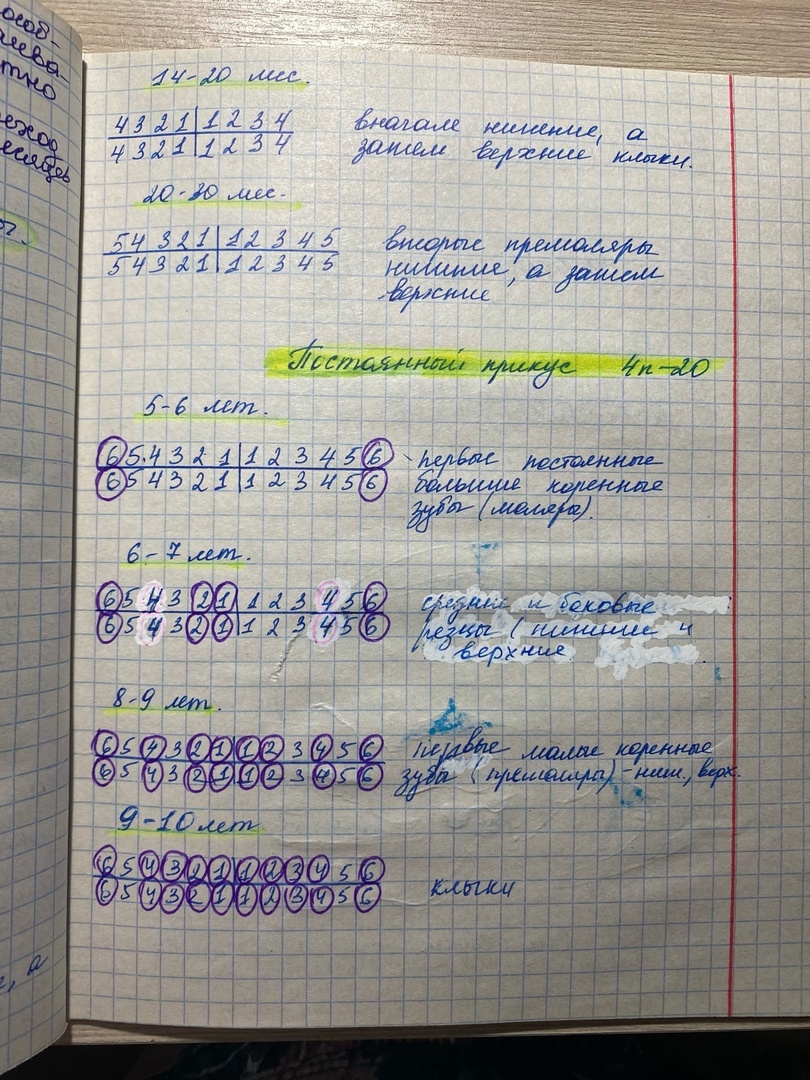 14-20 мес.
4 3 2 1 | 1 2 3 4
4 3 2 1 | 1 2 3 4
вначале нижние, а
затем верхние клыки.
20-30 мес.
5 4 3 2 1 | 1 2 3 4 5
5 4 3 2 1 | 1 2 3 4 5
вторые премоляры
нижние, а затем
верхние
Постоянный прикус 4n-20
5-6 лет.
6 5 4 3 2 1 | 1 2 3 4 5 6
6 5 4 3 2 1 | 1 2 3 4 5 6
первые постоянные
большие коренные
зубы (моляры).
6-7 лет.
6 5 4 3 2 1 | 1 2 3 4 5 6
6 5 4 3 2 1 | 1 2 3 4 5 6
средние и боковые
резцы (нижние и
верхние
8-9 лет.
6 5 4 3 2 1 | 1 2 3 4 5 6
6 5 4 3 2 1 | 1 2 3 4 5 6
Первые малые коренные
зубы (премоляры) - ниж., верх.
9-10 лет
6 5 4 3 2 1 | 1 2 3 4 5 6
6 5 4 3 2 1 | 1 2 3 4 5 6
клыки